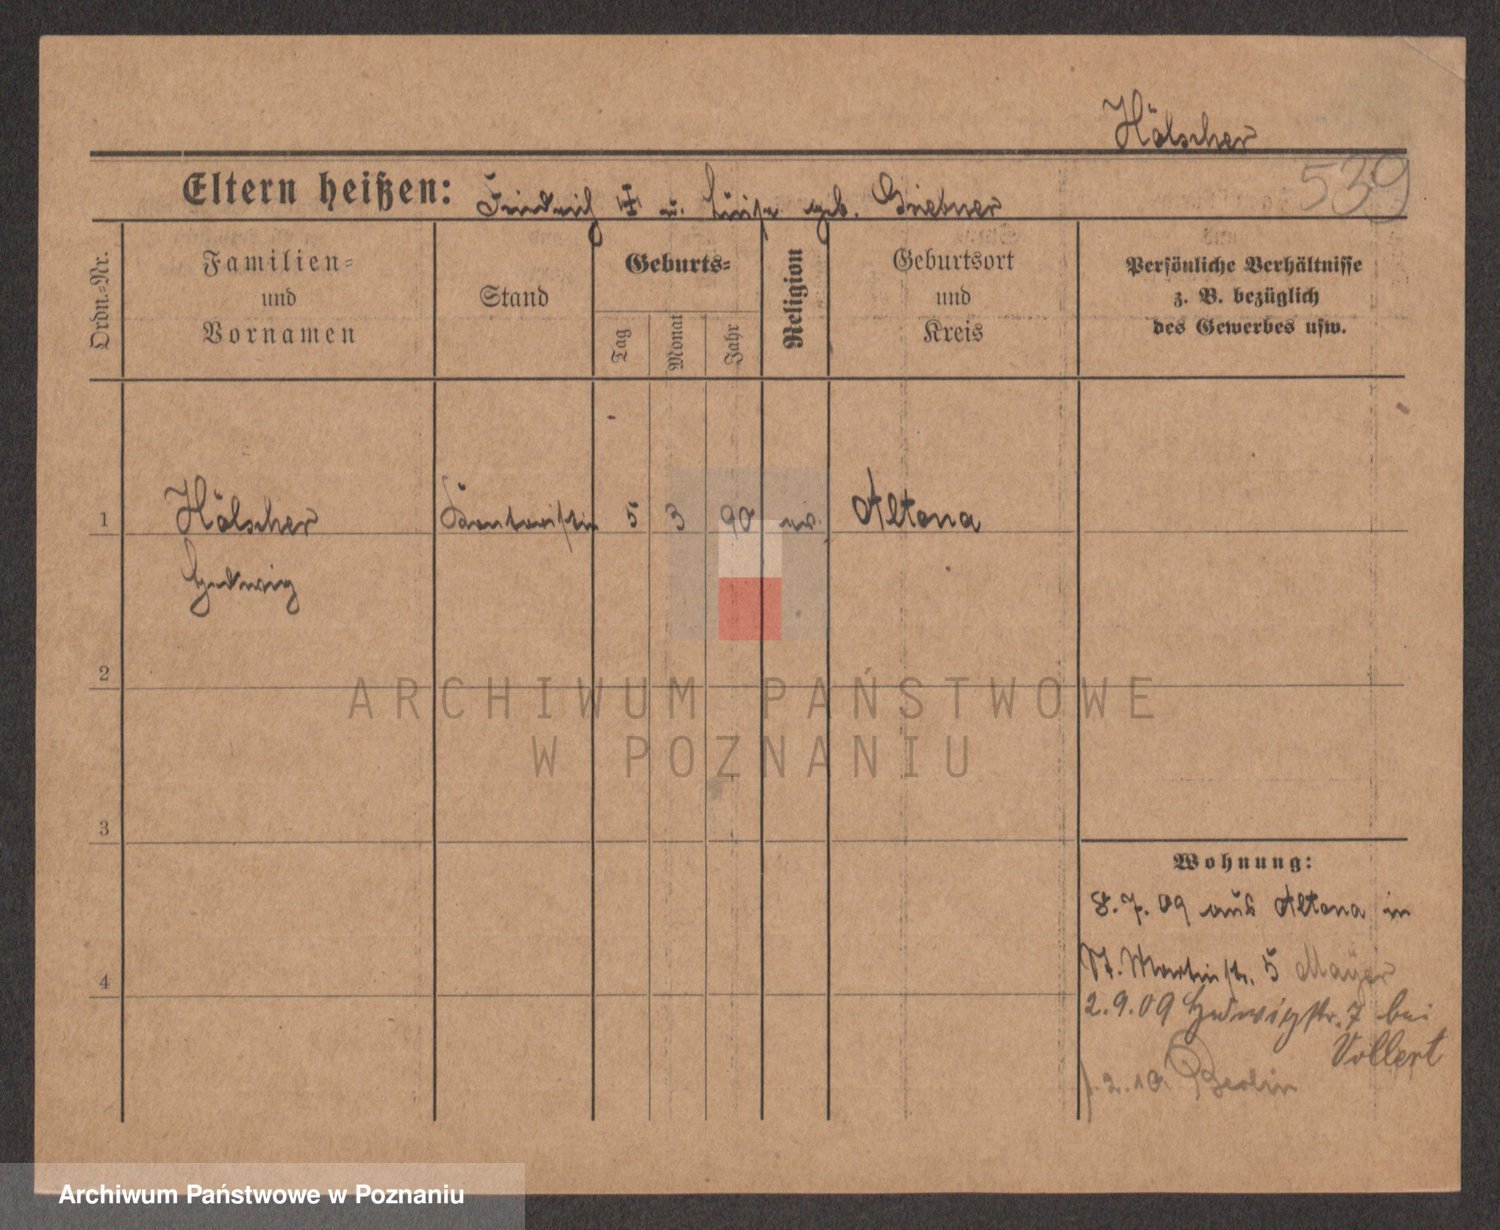 Hölscher
539
Eltern heißen: Friedrich H u. Luise geb. Griebner
Ordn.-Nr.
Familien- und Vornamen
Stand
Geburts-
Tag
Monat
Jahr
Religion
Geburtsort und Kreis
Persönliche Verhältnisse
z. B. bezüglich
des Gewerbes usw.
1 Hölscher 5 3 90 ev. Altona
Hedwig
2
3
4
Wohnung:
8.7.09 aus Altona in
St. Martinstr. 5 Mayer
2.9.09 Hedwigstr. 7 bei
Vollert
1.2.10. Berlin
ARCHIWUM PAŃSTWOWE
W POZNANIU
Archiwum Państwowe w Poznaniu